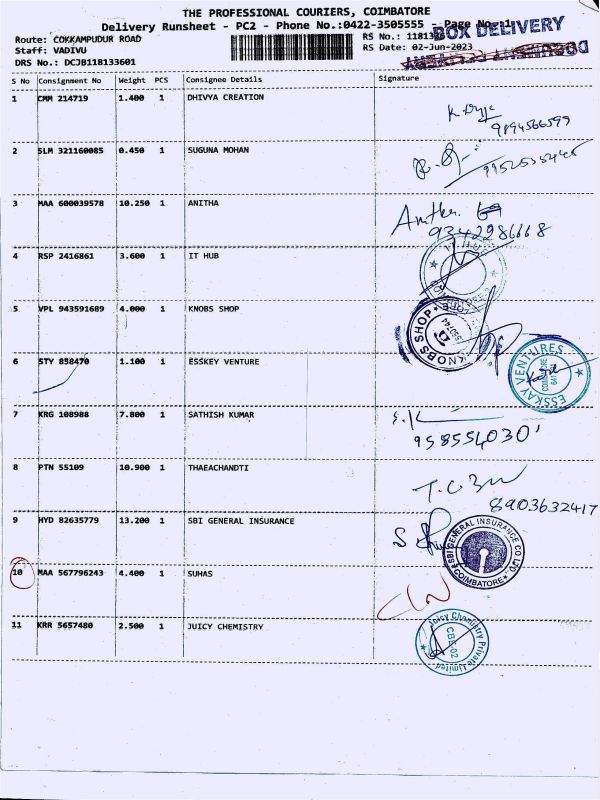 THE PROFESSIONAL COURIERS, COIMBATORE
Delivery Runsheet - PC2 - Phone No.:0422-3505555 - Page No.:1
BOX DELIVERY
Route: COKKAMPUDUR ROAD
RS No.: 1181336
Staff: VADIVU
RS Date: 02-Jun-2023
DRS No.: DCJB118133601
S No Consignment No Weight PCS Consignee Details Signature
1 CMM 214719 1.400 1 DHIVYA CREATION
9894566599
2 SLM 321160085 0.450 1 SUGUNA MOHAN
3 MAA 600039578 10.250 1 ANITHA
Anitha
9342286668
4 RSP 2416861 3.600 1 IT HUB
5 VPL 943591689 4.000 1 KNOBS SHOP
KNOBS SHOP
6 STY 858470 1.100 1 ESSKEY VENTURE
ESSKAY VENTURES
COIMBATORE
641
7 KRG 108988 7.800 1 SATHISH KUMAR
S.K
958554030
8 PTN 55109 10.900 1 THAEACHANDTI
T.C.
8903632417
9 HYD 82635779 13.200 1 SBI GENERAL INSURANCE
SBI GENERAL INSURANCE CO.LTD
COIMBATORE
10 MAA 567796243 4.400 1 SUHAS
11 KRR 5657480 2.500 1 JUICY CHEMISTRY
Juicy Chemistry Private Limited
CBE-02